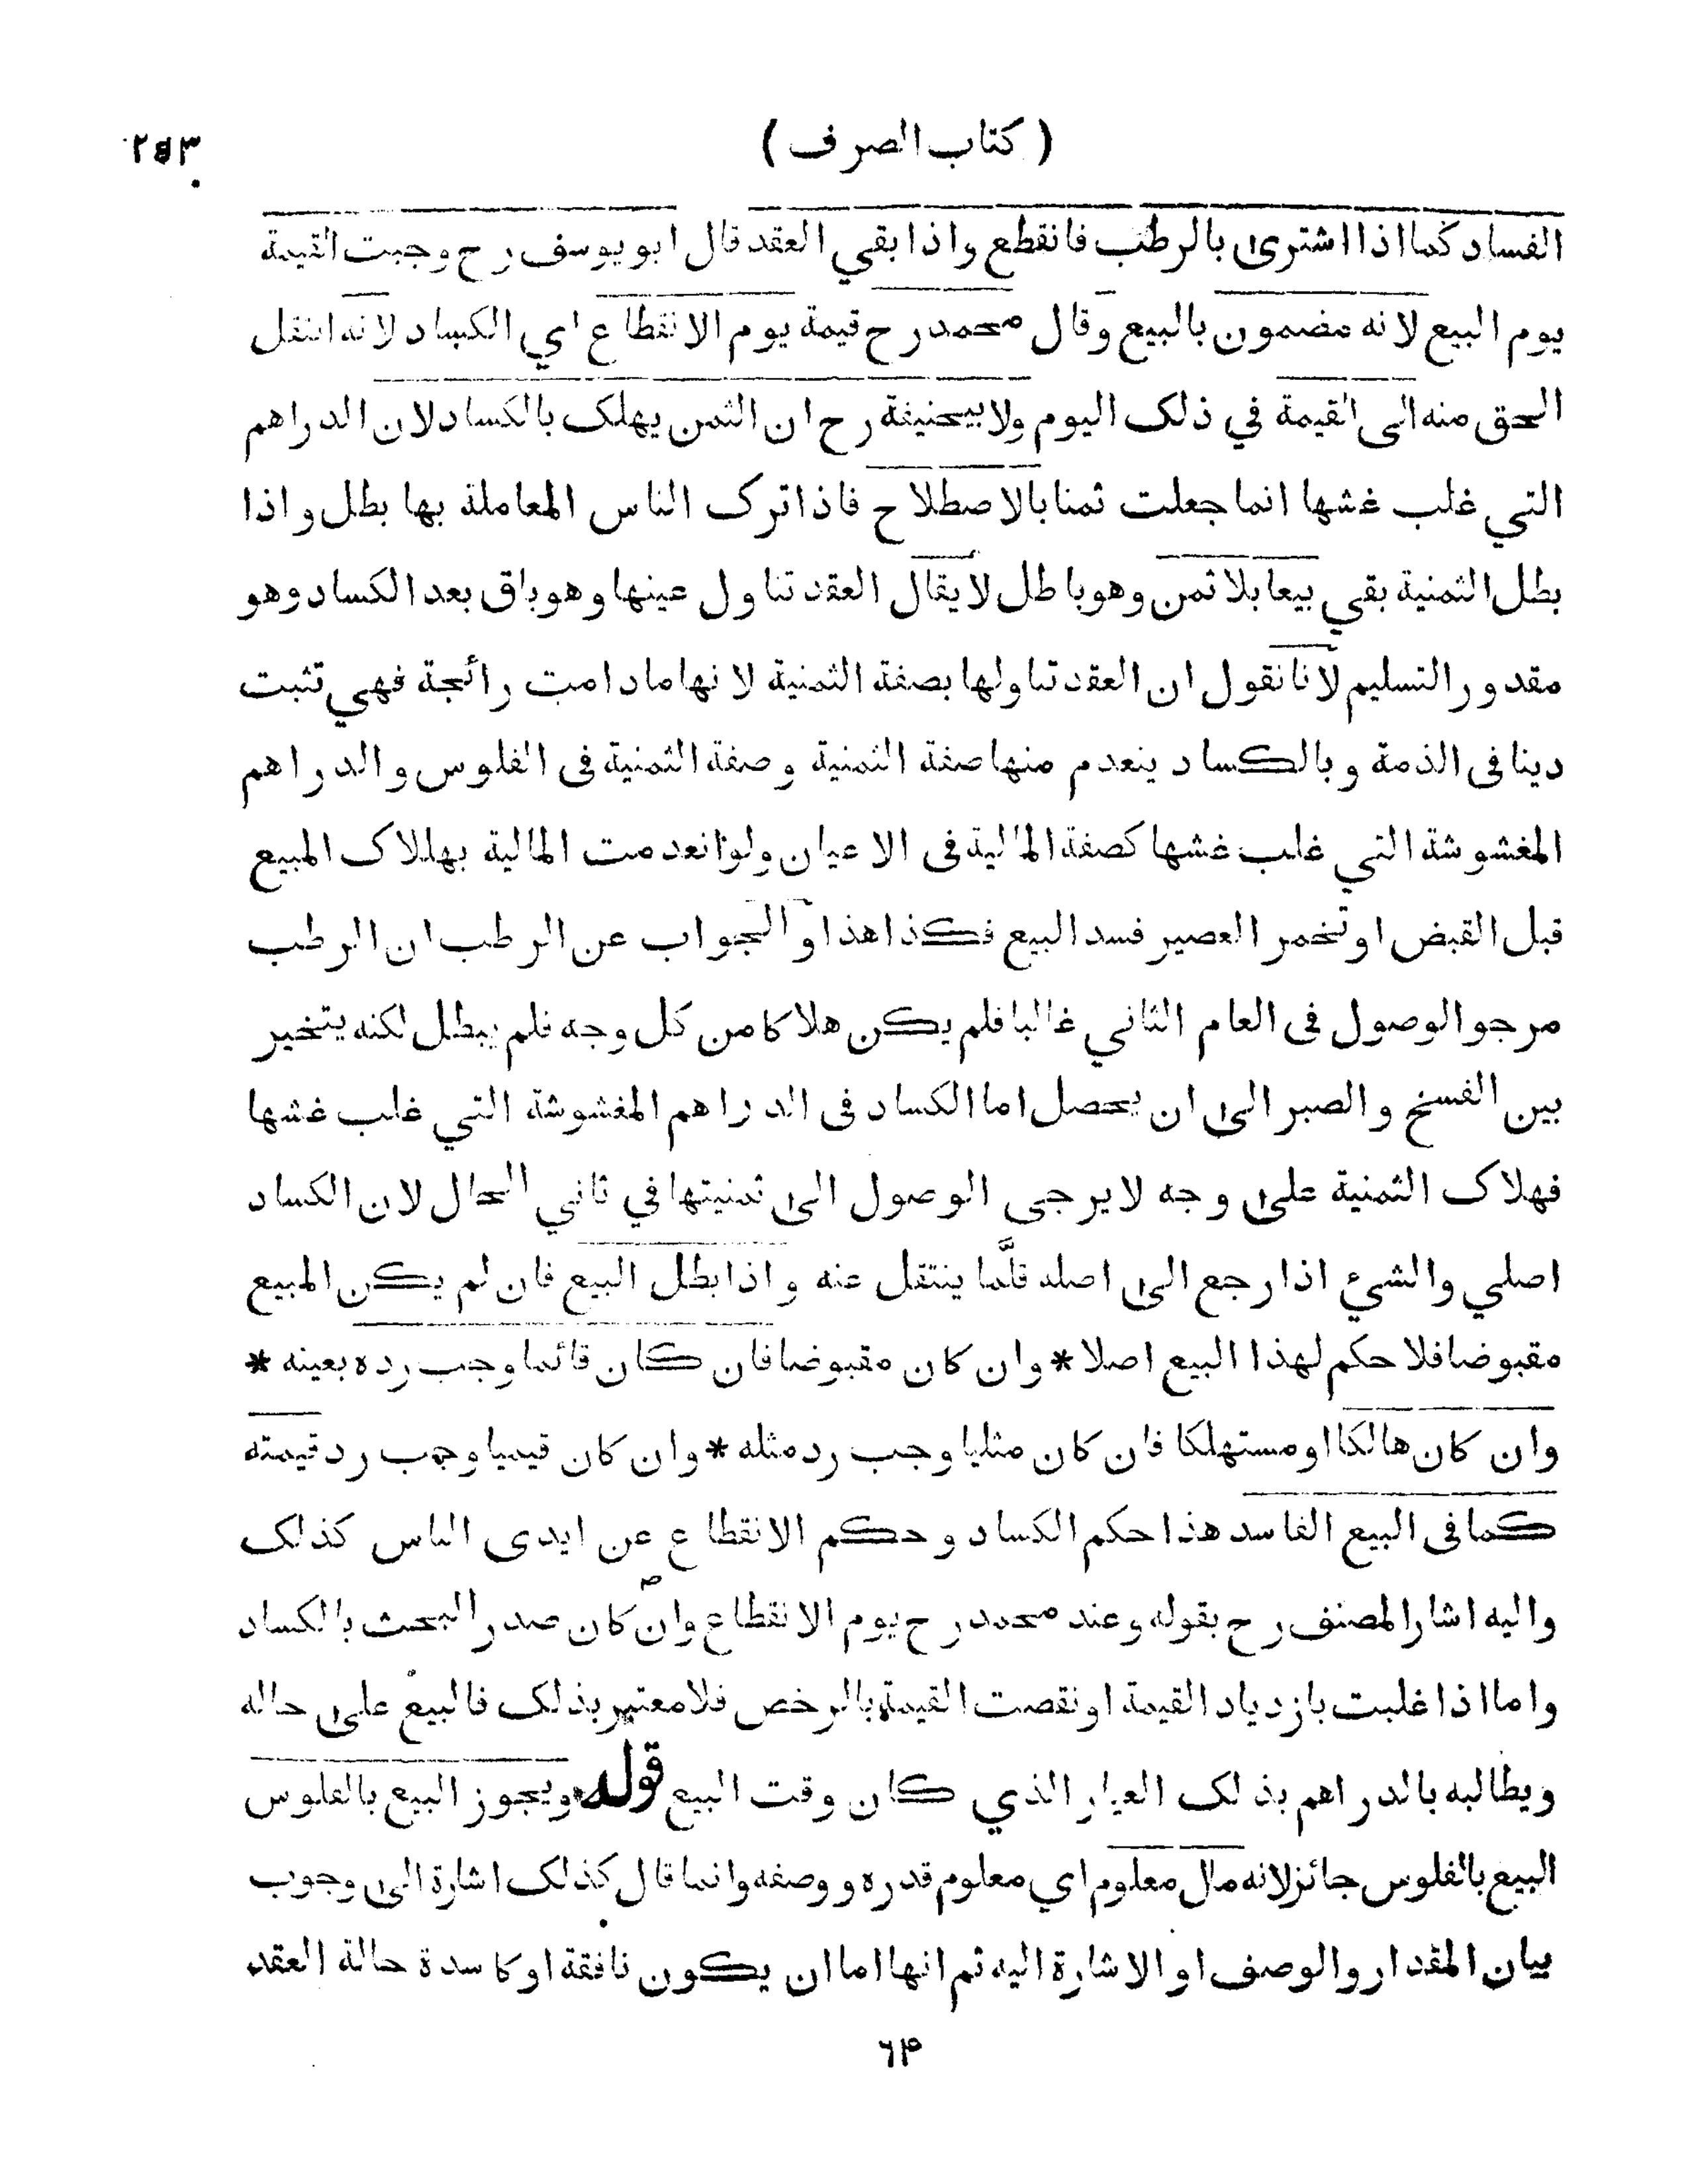 ( كتاب الصرف )
الفساد كما اذا اشترى بالرطب فانقطع واذا بقي العقد قال ابو يوسف رح وجبت القيمة
يوم البيع لانه مضمون بالبيع وقال محمد رح قيمة يوم الانقطاع اي الكساد لانه انتقل
الحق منه الى القيمة في ذلك اليوم ولابيحنيفة رح ان الثمن يهلك بالكساد لان الدراهم
التي غلب غشها انما جعلت ثمنا بالاصطلاح فاذا ترك الناس المعاملة بها بطل واذا
بطل الثمنية بقي بيعا بلا ثمن وهو باطل لا يقال العقد تناول عينها وهو باق بعد الكساد وهو
مقدور التسليم لانا نقول ان العقد تناولها بصفة الثمنية لانها مادامت رائجة فهي تثبت
دينا فى الذمة وبالكساد ينعدم منها صفة الثمنية وصفة الثمنية فى الفلوس والدراهم
المغشوشة التي غلب غشها كصفة المالية فى الاعيان ولو انعدمت المالية بهلاك المبيع
قبل القبض او تخمر العصير فسد البيع فكذا هذا والجواب عن الرطب ان الرطب
مرجو الوصول فى العام الثاني غالبا فلم يكن هلاكا من كل وجه فلم يبطل لكنه يتخير
بين الفسخ والصبر الى ان يحصل اما الكساد فى الدراهم المغشوشة التي غلب غشها
فهلاك الثمنية على وجه لا يرجى الوصول الى ثمنيتها في ثاني الحال لان الكساد
اصلي والشيء اذا رجع الى اصله قلَّما ينتقل عنه واذا بطل البيع فان لم يكن المبيع
مقبوضا فلا حكم لهذا البيع اصلا * وان كان مقبوضا فان كان قائما وجب رده بعينه *
وان كان هالكا او مستهلكا فان كان مثليا وجب رد مثله * وان كان قيميا وجب رد قيمته
كما فى البيع الفاسد هذا حكم الكساد وحكم الانقطاع عن ايدى الناس كذلك
واليه اشار المصنف رح بقوله وعند محمد رح يوم الانقطاع وان كان صدر البحث بالكساد
واما اذا غلبت بازدياد القيمة او نقصت القيمة بالرخص فلا معتبر بذلك فالبيع على حاله
ويطالبه بالدراهم بذلك العيار الذي كان وقت البيع قوله ويجوز البيع بالفلوس
البيع بالفلوس جائز لانه مال معلوم اي معلوم قدره ووصفه وانما قال كذلك اشارة الى وجوب
بيان المقدار والوصف او الاشارة اليه ثم انها اما ان يكون نافقة او كاسدة حالة العقد
٦٤